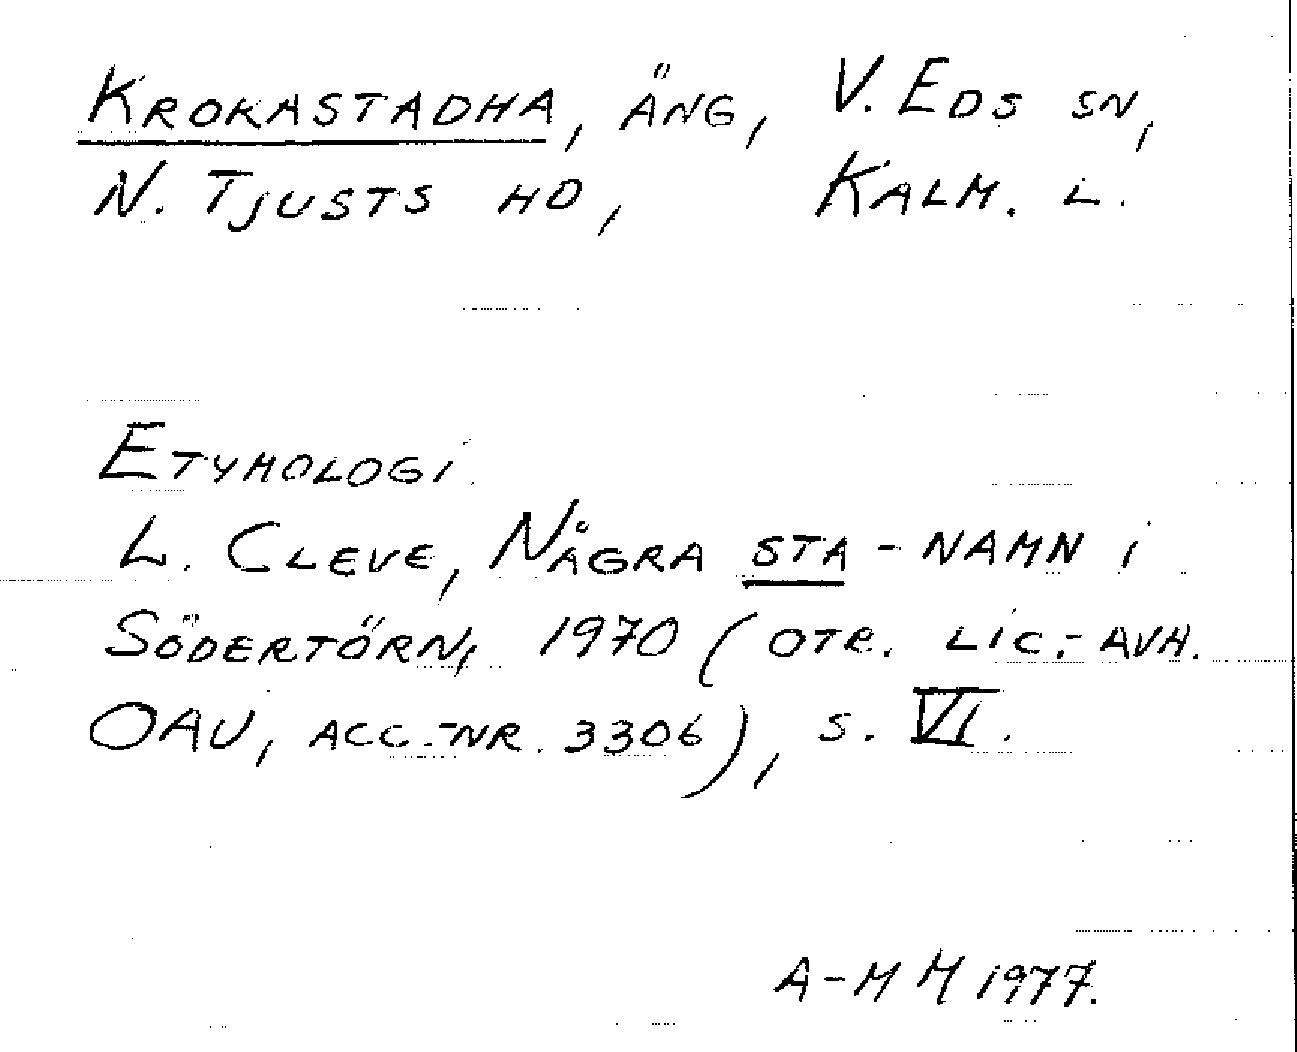 KROKASTADHA, ÄNG, V. EDS SN,
N. TJUSTS HD, KALM. L.
ETYMOLOGI.
L. CLEVE, NÅGRA STA-NAMN I
SÖDERTÖRN, 1970 (OTR. LIC.-AVH.
OAU, ACC.-NR. 3306), S. VI.
A-M M 1977.